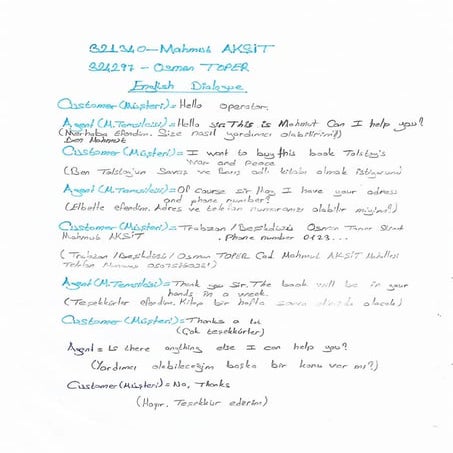 321340-Mahmut AKŞİT
324297 - Osman TOPER
English Dialogue
Customer (Müşteri) = Hello operator.
Agent (M.Temsilcisi) = Hello sir. This is Mahmut Can I help you?
(Merhaba Efendim. Size nasıl yardımcı olabilirim?)
Ben Mahmut
Customer (Müşteri) = I want to buy this book Tolstoy's
War and Peace
(Ben Tolstoy'un Savaş ve Barış adlı kitabı almak istiyorum)
Agent (M.Temsilcisi) = Of course sir May I have your adress
and phone number?
(Elbette efendim. Adres ve telefon numaranızı alabilir miyim?)
Customer (Müşteri) = Trabzon / Beşikdüzü Osman Toper Street
Mahmut AKŞİT . Phone number 0423...
(Trabzon / Beşikdüzü / Osman TOPER Cad. Mahmut AKŞİT Mahallesi
Telefon Numarası
Agent (M.Temsilcisi) = Thank you Sir. The book will be in your
hands in a week.
(Teşekkürler efendim. Kitap bir hafta sonra elinizde olacak)
Customer (Müşteri) = Thanks a lot
(Çok teşekkürler)
Agent = Is there anything else I can help you?
(Yardımcı olabileceğim başka bir konu var mı?)
Customer (Müşteri) = No, Thanks
(Hayır. Teşekkür ederim)